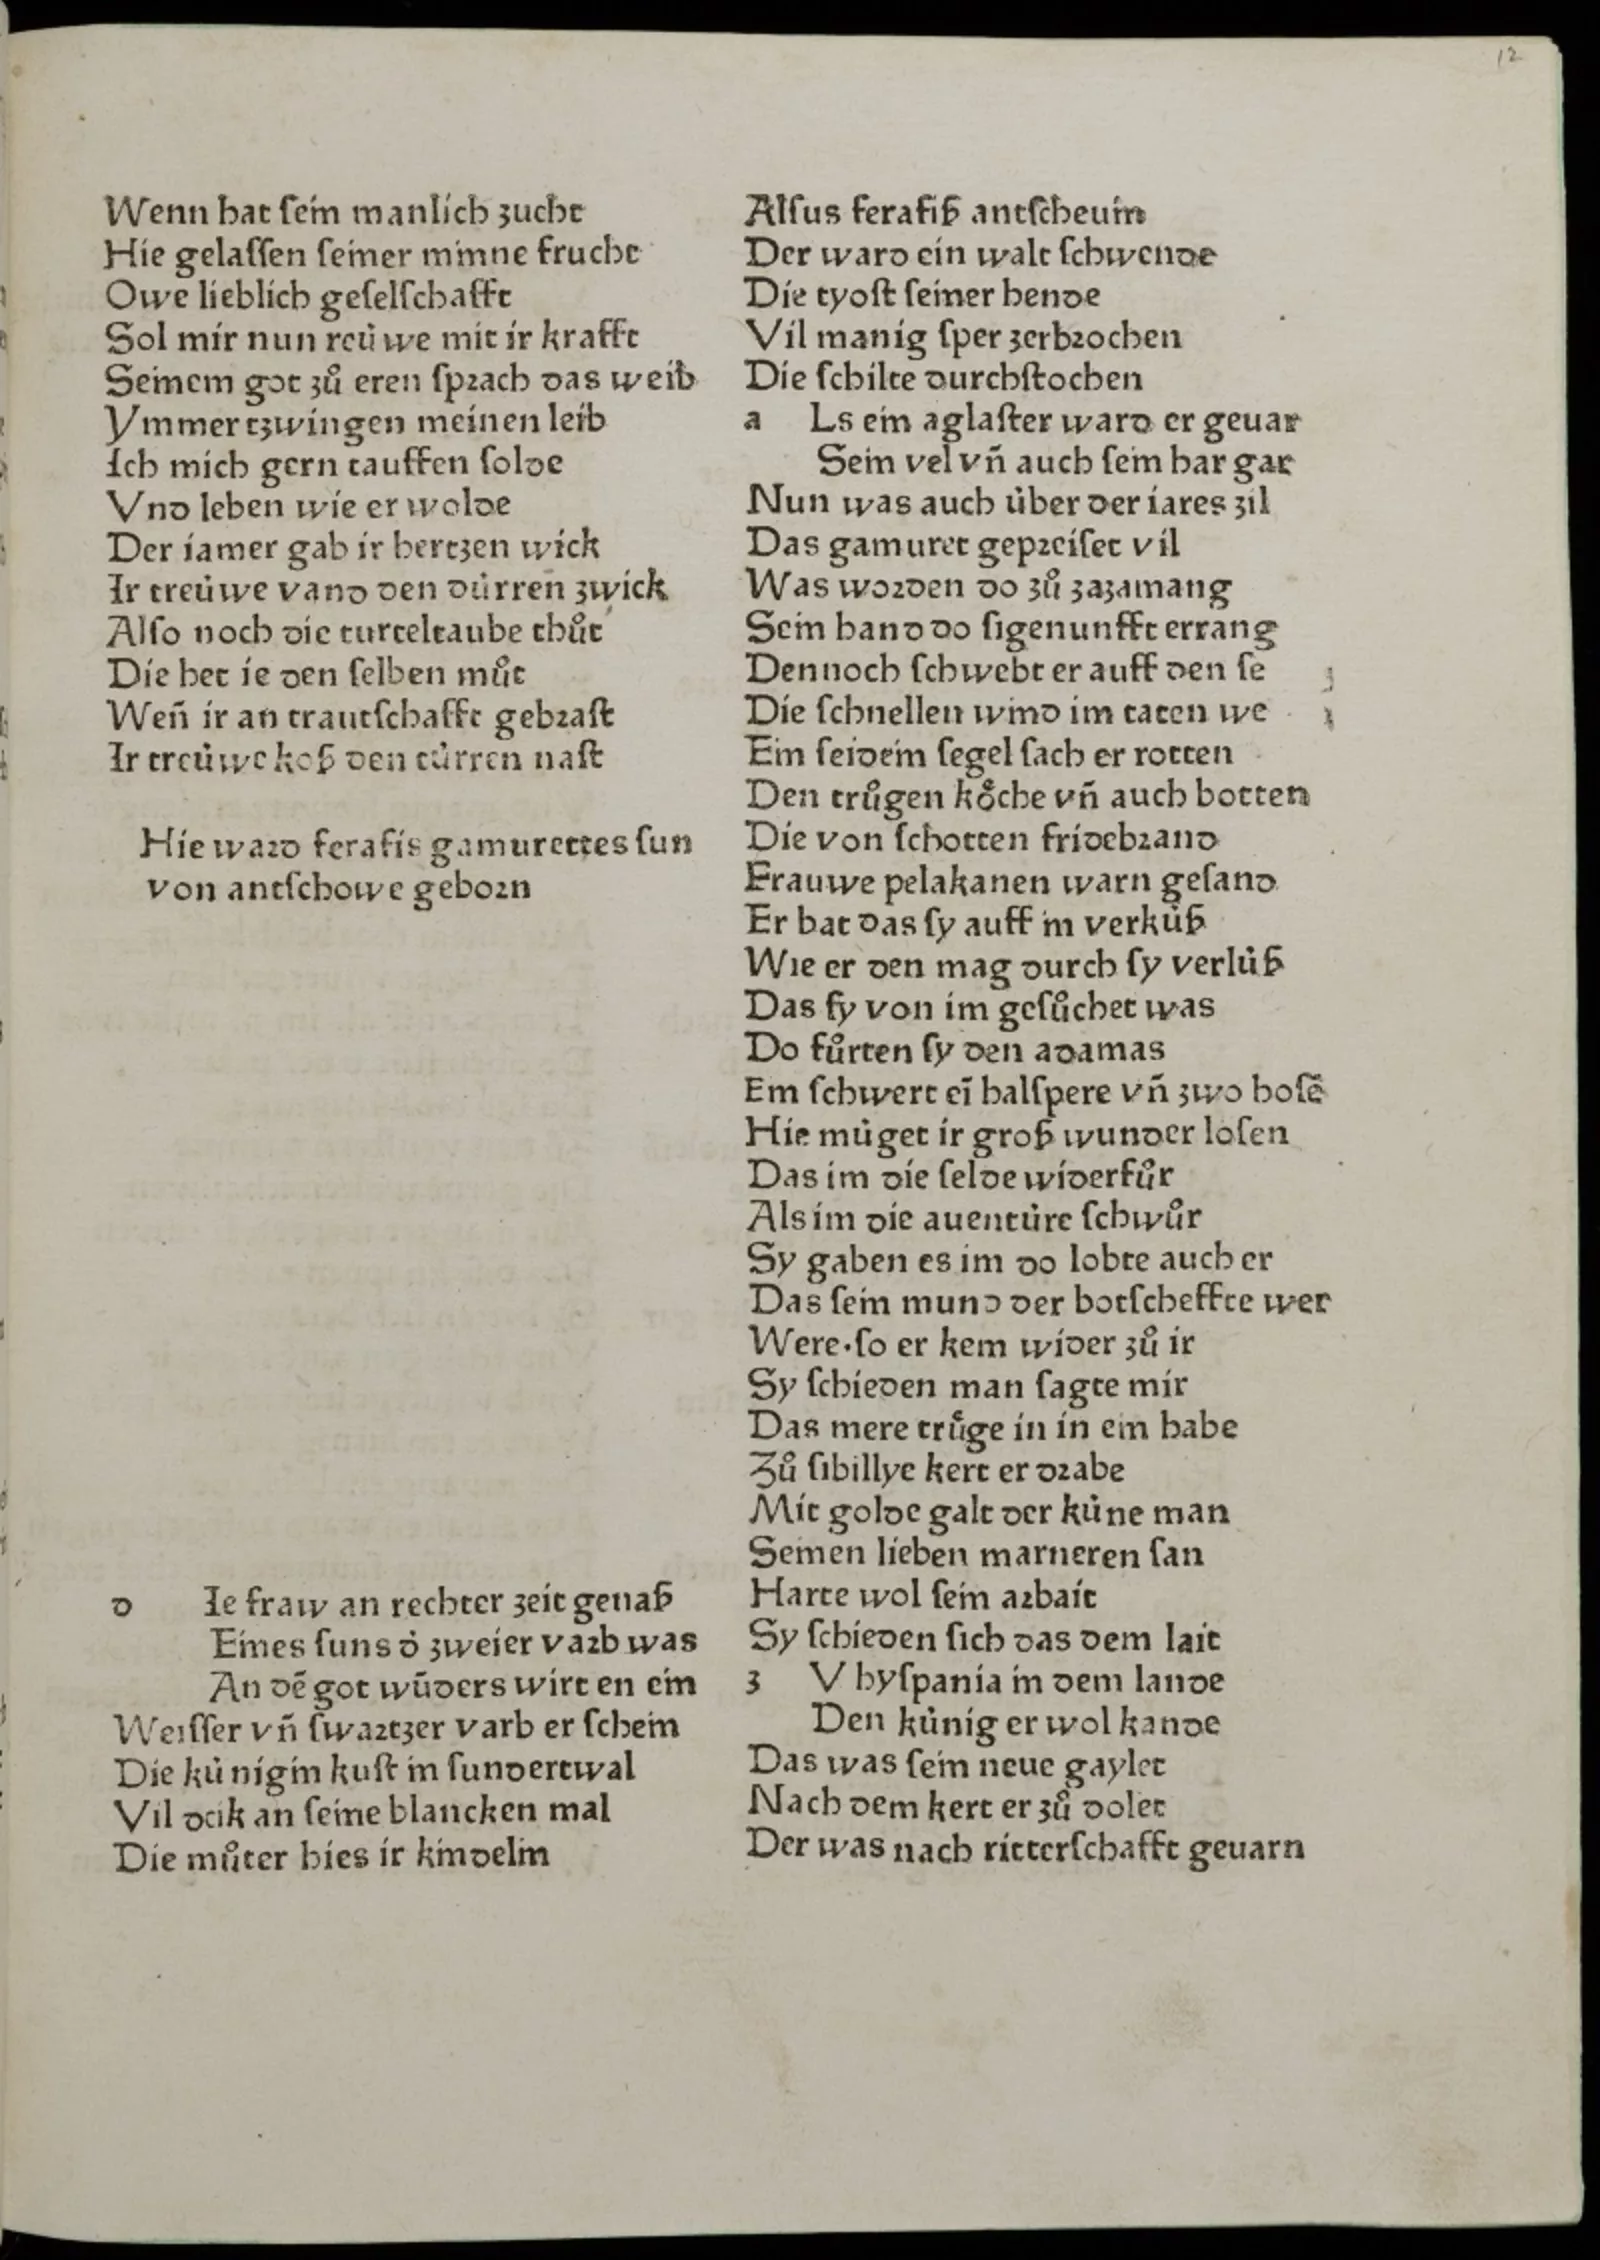 12
Wenn hat ſein manlich zucht
Hie gelaſſen ſeiner minne frucht
Owe lieblich geſelſchafft
Sol mir nun reüwe mit ir krafft
Seinem got zů eren ſprach das weib
Ymmer tzwingen meinen leib
Ich mich gern tauffen ſolde
Vnd leben wie er wolde
Der iamer gab ir hertzen wick
Ir treüwe vand den dürren zwick
Alſo noch die turteltaube thůt
Die het ie den ſelben můt
Weñ ir an trautſchafft gebraſt
Ir treüwe koß den türren naſt
Hie ward ferafis gamurettes ſun
von antſchowe geborn
d Ie fraw an rechter zeit genaß
Eines ſuns d̓ zweier varb was
An dē got wūders wirt en ein
Weiſſer vñ ſwartzer varb er ſchein
Die künigin kuſt in ſundertwal
Vil dcik an ſeine blancken mal
Die můter hies ir kindelin
Alſus ferafiß antſcheuin
Der ward ein walt ſchwende
Die tyoſt ſeiner hende
Vil manig ſper zerbrochen
Die ſchilte durchſtochen
a Ls ein aglaſter ward er geuar
Sein vel vñ auch ſein har gar
Nun was auch über der iares zil
Das gamuret gepreiſet vil
Was worden do zů zazamang
Sein hand do ſigenunfft errang
Dennoch ſchwebt er auff den ſe
Die ſchnellen wind im taten we
Ein ſeidein ſegel ſach er rotten
Den trůgen kőche vñ auch botten
Die von ſchotten fridebrand
Frauwe pelakanen warn geſand
Er bat das ſy auff in verküß
Wie er den mag durch ſy verlüß
Das ſy von im geſůchet was
Do fůrten ſy den adamas
Ein ſchwert eī halſpere vñ zwo hoſē
Hie müget ir groß wunder loſen
Das im die ſelde widerfůr
Als im die auentüre ſchwůr
Sy gaben es im do lobte auch er
Das ſein mund der botſcheffte wer
Were·ſo er kem wider zů ir
Sy ſchieden man ſagte mir
Das mere trůge in in ein habe
Zů ſibillye kert er drabe
Mit golde galt der küne man
Seinen lieben marneren ſan
Harte wol ſein arbait
Sy ſchieden ſich das dem lait
z V hyſpania in dem lande
Den künig er wol kande
Das was ſein neue gaylet
Nach dem kert er zů dolet
Der was nach ritterſchafft geuarn